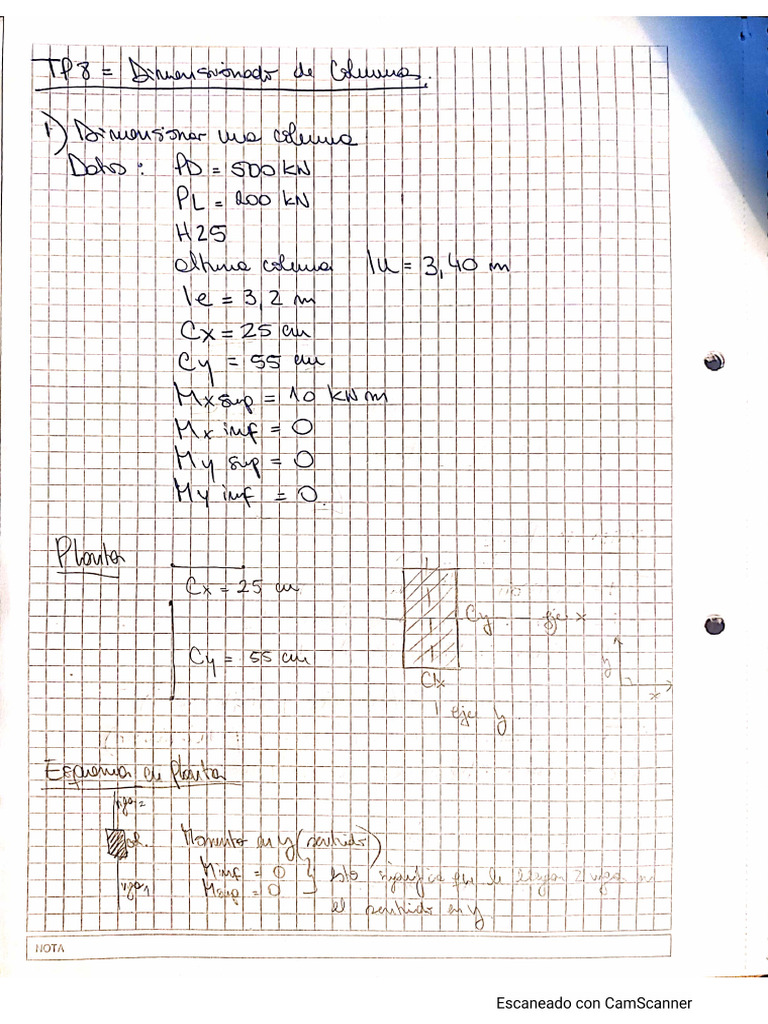 TP8 = Dimensionado de Columnas.
1) Dimensionar una columna
Datos: PD = 500 KN
PL = 200 KN
H25
altura columna lu = 3,40 m
le = 3,2 m
Cx = 25 cm
Cy = 55 cm
Mx sup = 10 KNm
Mx inf = 0
My sup = 0
My inf = 0.
Planta
Cx = 25 cm
Cy eje x
Cy = 55 cm
y
Cx
x
eje y
Esquema en Planta
viga 2
col. Momento en y (sentido)
M inf = 0 } esto significa que le llegan 2 vigas en
viga 1 M sup = 0
el sentido en y
NOTA
Escaneado con CamScanner